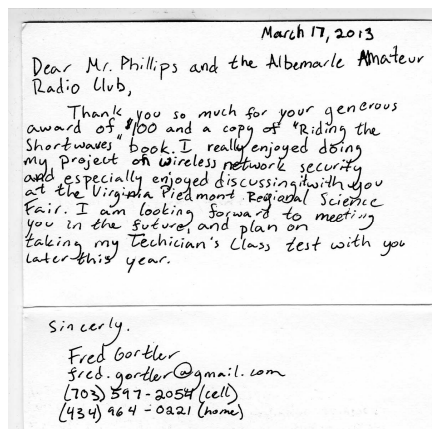 March 17, 2013
Dear Mr. Phillips and the Albemarle Amateur
Radio Club,
Thank you so much for your generous
award of $100 and a copy of "Riding the
Shortwaves" book. I really enjoyed doing
my project on wireless network security
and especially enjoyed discussing it with you
at the Virginia Piedmont Regional Science
Fair. I am looking forward to meeting
you in the future, and plan on
taking my Techician's Class test with you
later this year.
Sincerly,
Fred Gortler
fred.gortler@gmail.com
(703) 597-2054 (cell)
(434) 964-0221 (home)